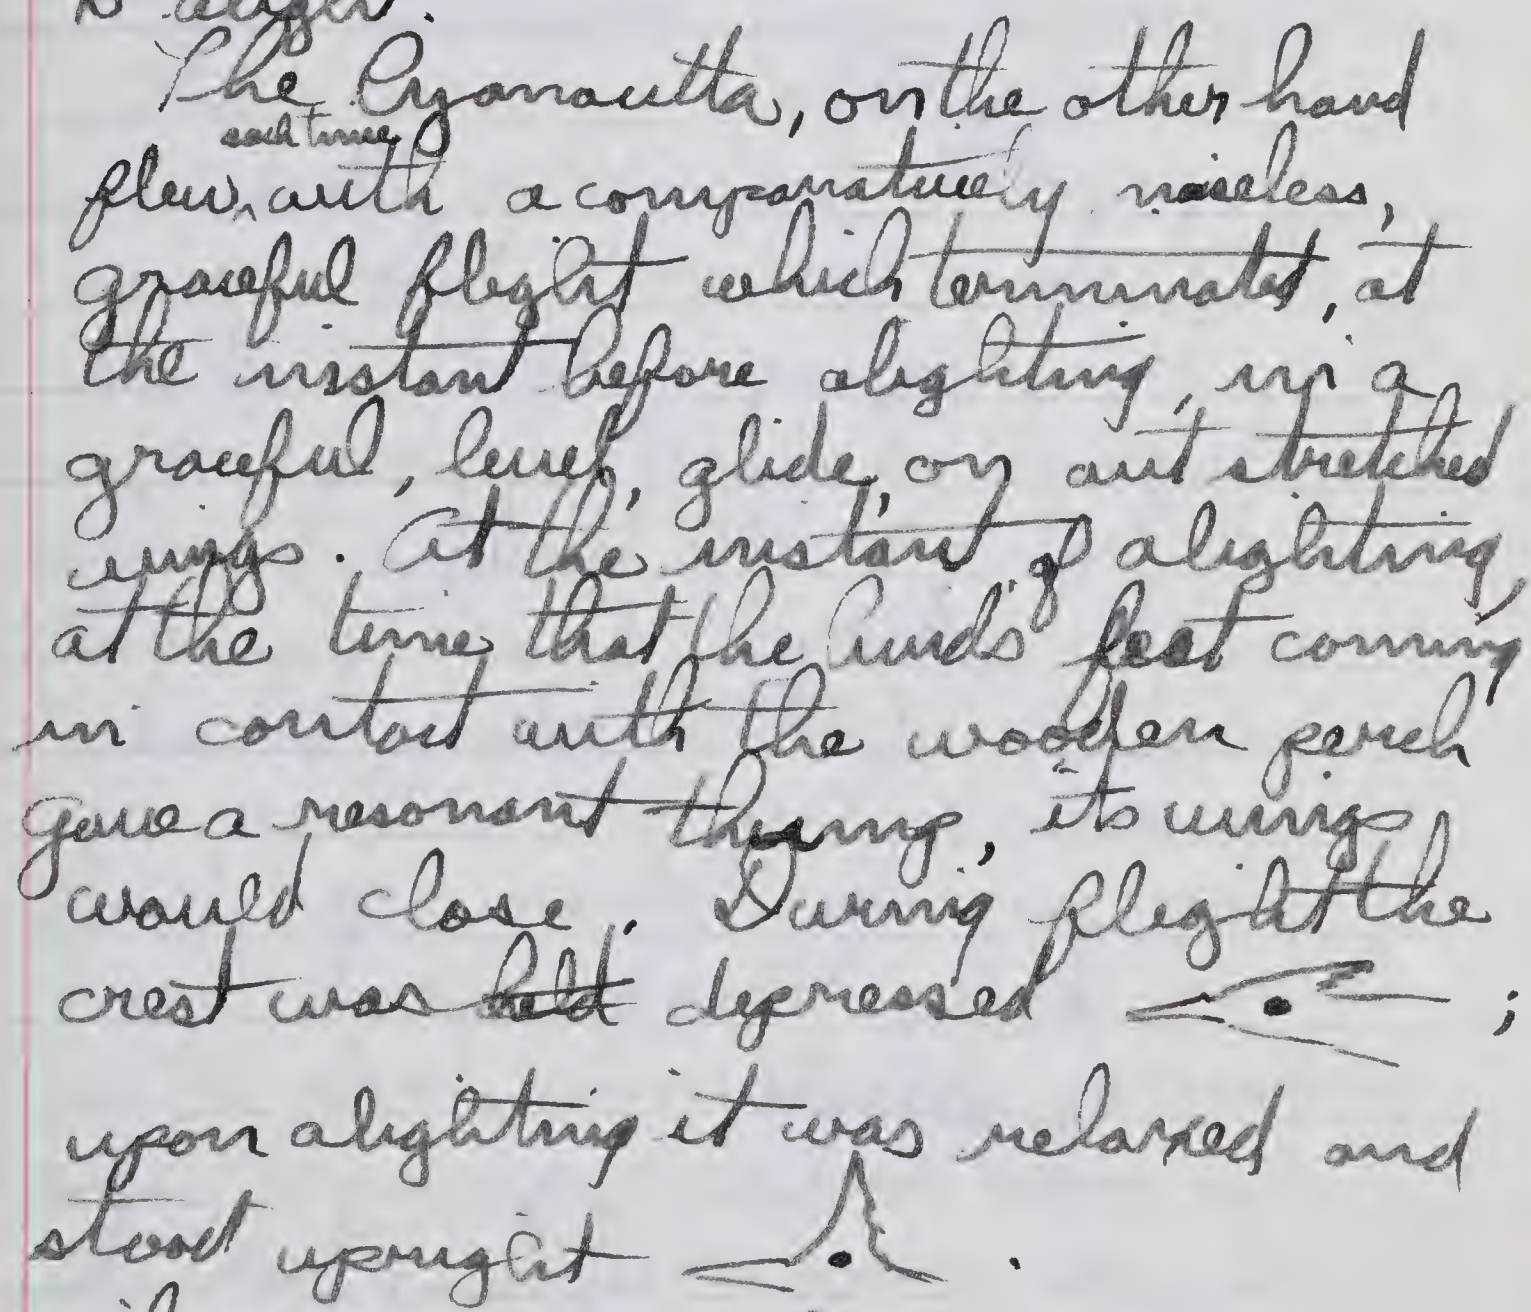 to alight.
The Cyanocitta, on the other hand
each time
flew, with a comparatively noiseless,
graceful flight which terminated, at
the instant before alighting, in a
graceful, level, glide, on out stretched
wings. At the instant of alighting,
at the time that the birds' feet coming
in contact with the wooden perch
gave a resonant thump, its wings
would close. During flight the
crest was held depressed ;
upon alighting it was relaxed and
stood upright .